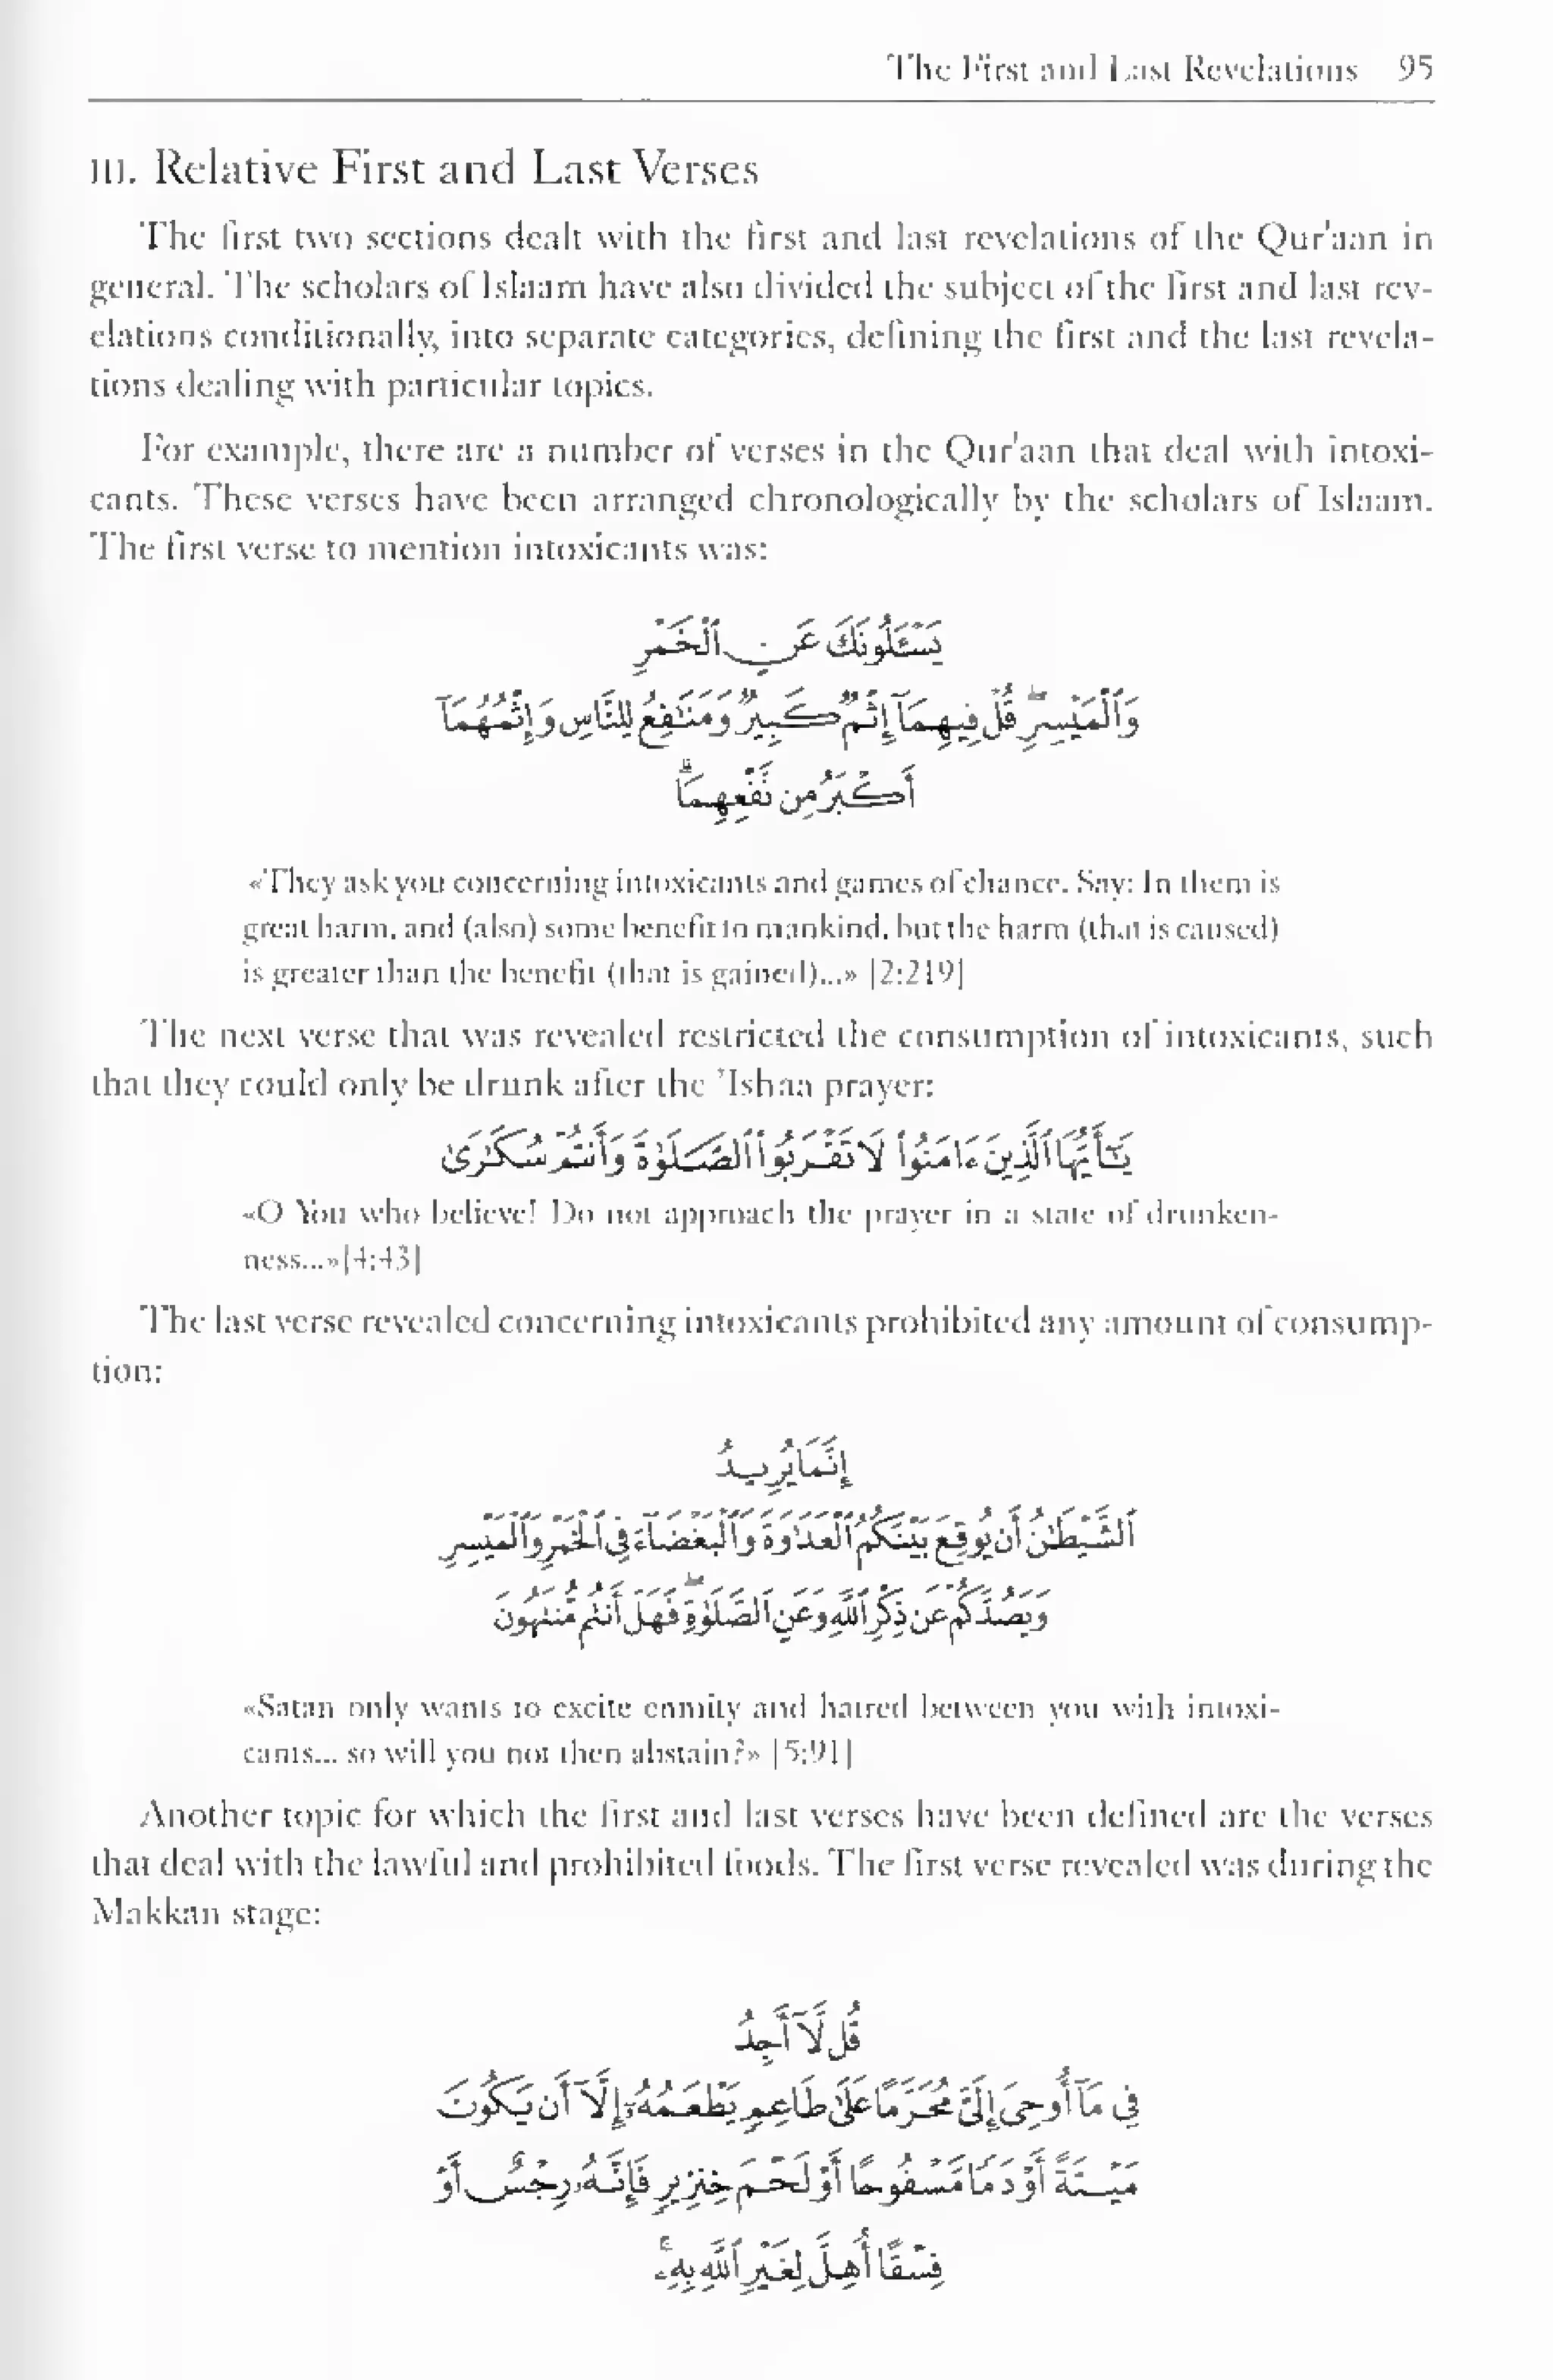 The First and Last Revelations 95
III. Relative First and Last Verses
The first two sections dealt with the first and last revelations of the Qur'aan in
general. The scholars of Islaam have also divided the subject of the first and last rev-
elations conditionally, into separate categories, defining the first and the last revela-
tions dealing with particular topics.
For example, there are a number of verses in the Qur'aan that deal with intoxi-
cants. These verses have been arranged chronologically by the scholars of Islaam.
The first verse to mention intoxicants was:
يَسْـَٔلُونَكَ عَنِ ٱلْخَمْرِ
وَٱلْمَيْسِرِ ۖ قُلْ فِيهِمَآ إِثْمٌ كَبِيرٌ وَمَنَـٰفِعُ لِلنَّاسِ وَإِثْمُهُمَآ
أَكْبَرُ مِن نَّفْعِهِمَا ۗ
«They ask you concerning intoxicants and games of chance. Say: In them is
great harm, and (also) some benefit to mankind, but the harm (that is caused)
is greater than the benefit (that is gained)...» [2:219]
The next verse that was revealed restricted the consumption of intoxicants, such
that they could only be drunk after the 'Ishaa prayer:
يَـٰٓأَيُّهَا ٱلَّذِينَ ءَامَنُوا۟ لَا تَقْرَبُوا۟ ٱلصَّلَوٰةَ وَأَنتُمْ سُكَـٰرَىٰ
«O You who believe! Do not approach the prayer in a state of drunken-
ness...»[4:43]
The last verse revealed concerning intoxicants prohibited any amount of consump-
tion:
إِنَّمَا يُرِيدُ
ٱلشَّيْطَـٰنُ أَن يُوقِعَ بَيْنَكُمُ ٱلْعَدَٰوَةَ وَٱلْبَغْضَآءَ فِى ٱلْخَمْرِ وَٱلْمَيْسِرِ
وَيَصُدَّكُمْ عَن ذِكْرِ ٱللَّهِ وَعَنِ ٱلصَّلَوٰةِ ۖ فَهَلْ أَنتُم مُّنتَهُونَ
«Satan only wants to excite enmity and hatred between you with intoxi-
cants... so will you not then abstain?» [5:91]
Another topic for which the first and last verses have been defined are the verses
that deal with the lawful and prohibited foods. The first verse revealed was during the
Makkan stage:
قُل لَّآ أَجِدُ
فِى مَآ أُوحِىَ إِلَىَّ مُحَرَّمًا عَلَىٰ طَاعِمٍ يَطْعَمُهُۥٓ إِلَّآ أَن يَكُونَ
مَيْتَةً أَوْ دَمًا مَّسْفُوحًا أَوْ لَحْمَ خِنزِيرٍ فَإِنَّهُۥ رِجْسٌ أَوْ
فِسْقًا أُهِلَّ لِغَيْرِ ٱللَّهِ بِهِۦ ۚ